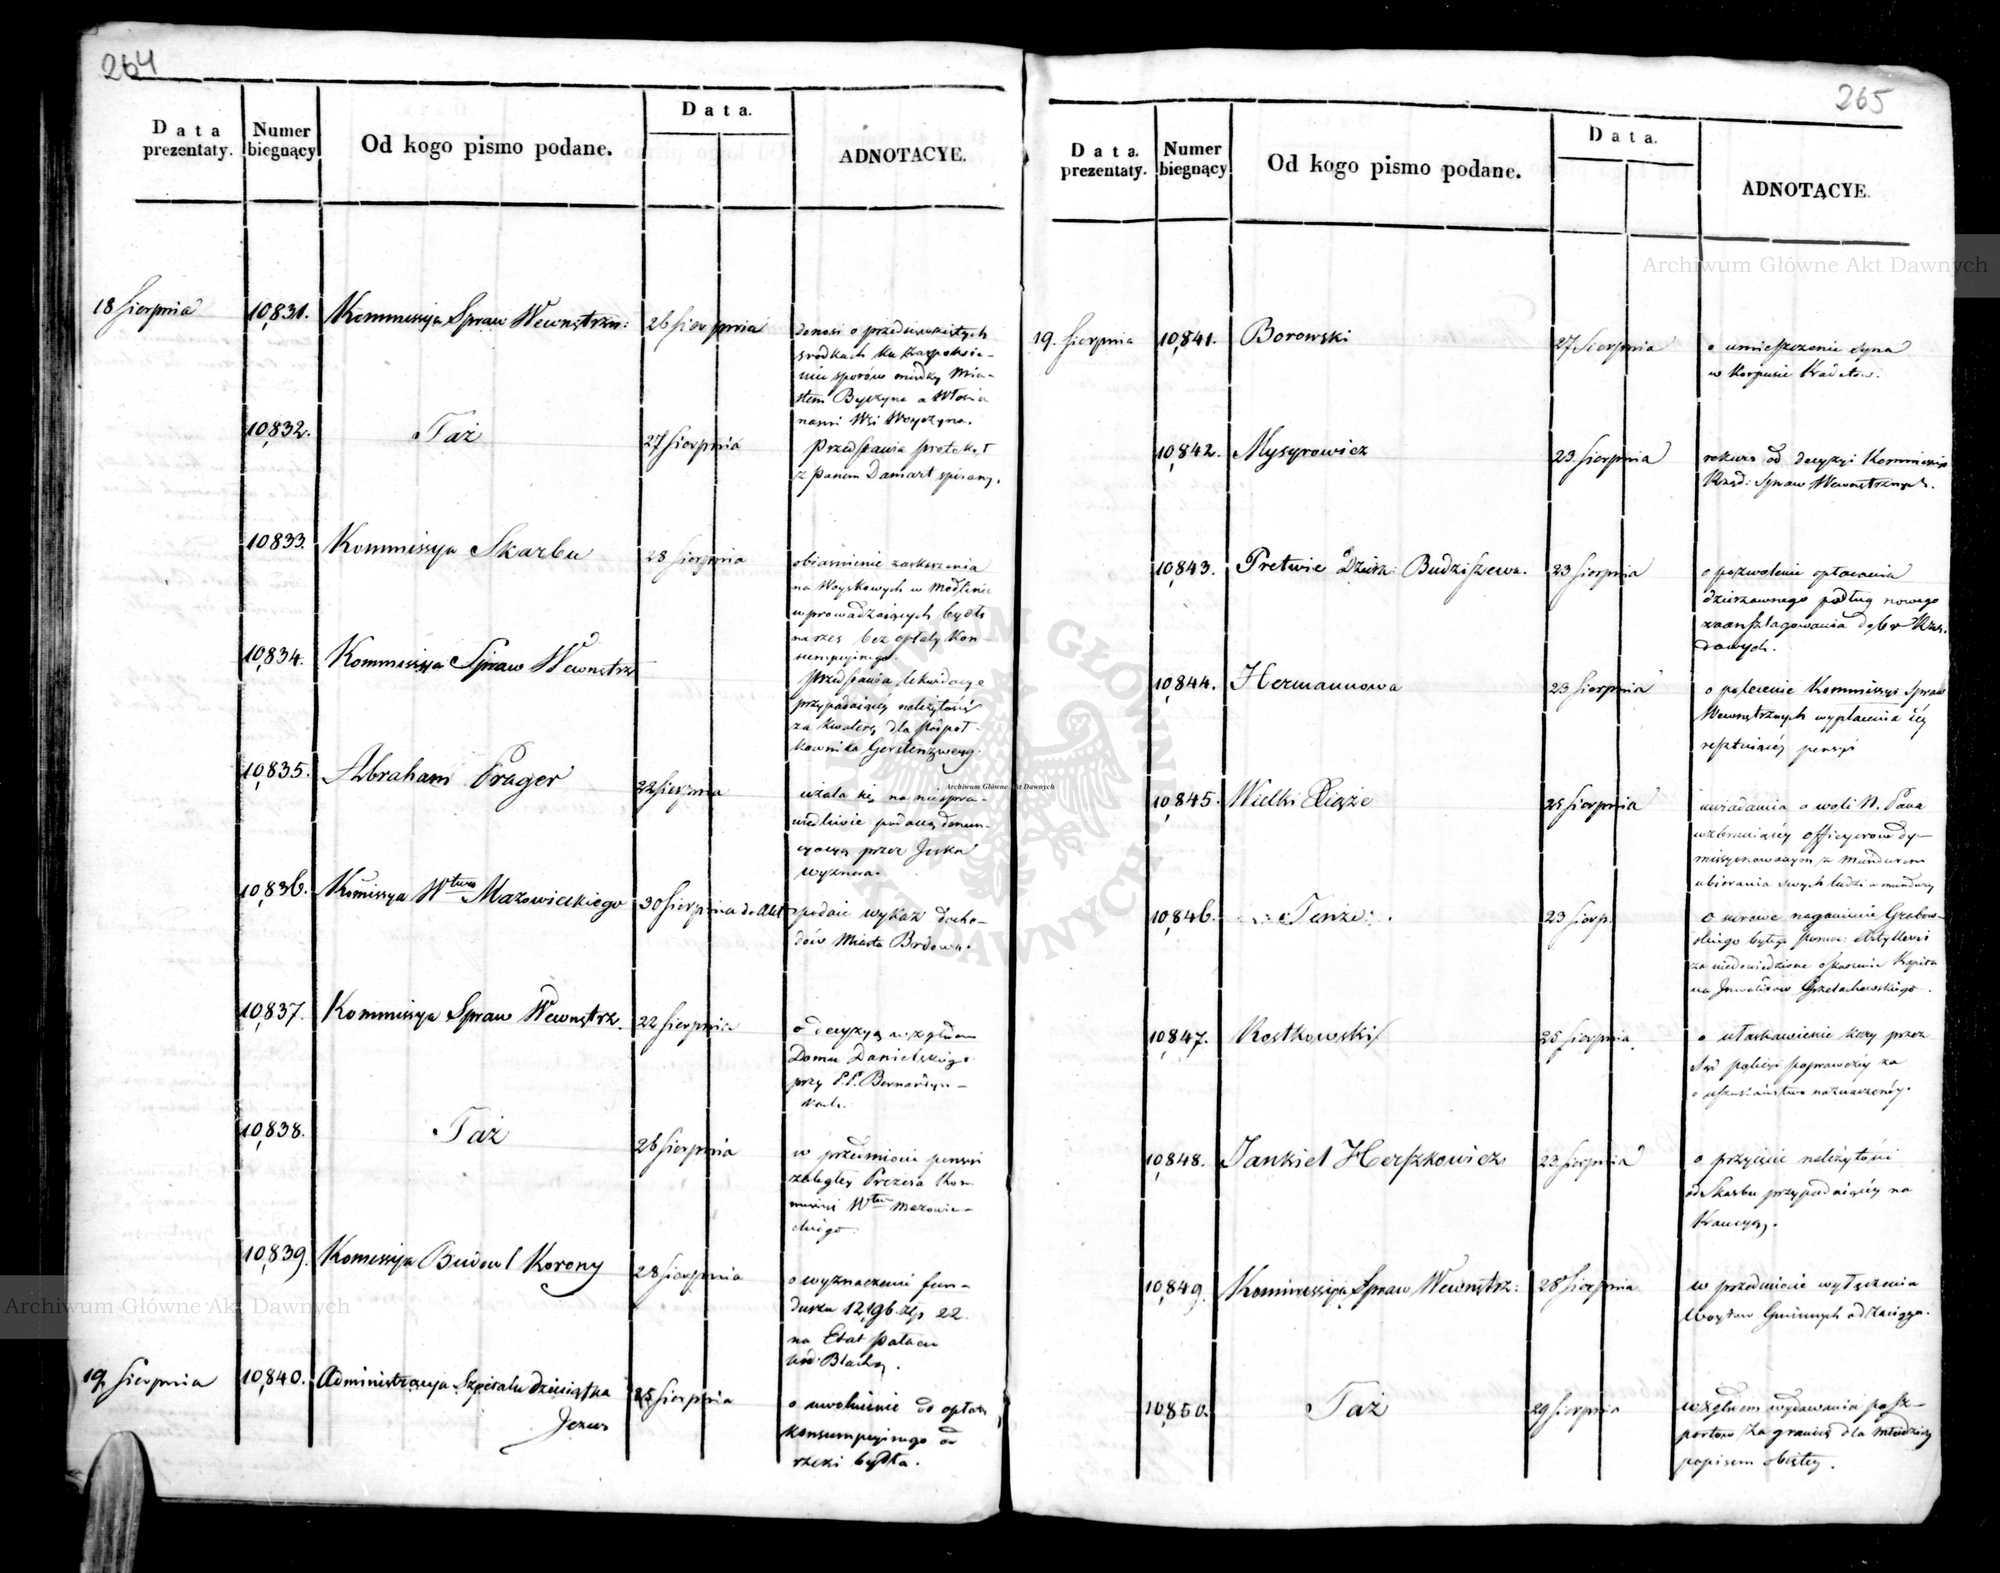 264
Data prezentaty. Numer biegnący Od kogo pismo podane. Data. ADNOTACYE.
18 Sierpnia 10,831. Kommissyja Spraw Wewnętrzn: 26 Sierpnia donosi o przedsięwziętych
środkach ku zaspokoie-
niu sporów między Mia-
stem Byczyna a Włościa
nami Wsi Woyczyna.
10,832. Taż 27 Sierpnia Przedstawia protokół
z Panem Damart spisany.
10833. Kommissya Skarbu 28 Sierpnia obiaśnienie zaskarżenia
na Woyskowych w Modlinie
wprowadzaiących bydło
na rzeź bez opłaty Kon
sumpcyinego.
10,834. Kommissyja Spraw Wewnętrz Przedstawia likwidacye
przypadaiącéy należytości
za kwaterę dla Podpół-
kownika Gerstenzweyg.
10,835. Abraham Prager 22 Sierpnia użala się na niespra-
wiedliwie podaną denun-
cyacyą przez Joska
wyznera.
10,836. Komissya Wtwa Mazowieckiego 30 Sierpnia do Akt podaie wykaz docho-
dów Miasta Brdowa.
10,837. Kommissya Spraw Wewnętrz. 22 Sierpnia o decyzyą względem
Domu Danielskiego
przy P.P. Bernardyn-
kach.
10,838. Taż 26 Sierpnia w przedmiocie pensyi
zaległéy Prezesa Kom
missyi Wtwa Mazowie-
ckiego.
10,839. Komissyja Budowl Korony 28 Sierpnia o wyznaczenie fun-
duszu 12,196. złp 22.
na Etat Pałacu
pod Blachą.
19 Sierpnia 10,840. Administracyja Szpitalu Dzieciątka
Jezus 25 Sierpnia o uwolnienie od opłaty
konsumpcyinego od
rzezi bydła.
265
Data. prezentaty. Numer biegnący Od kogo pismo podane. Data. ADNOTACYE.
19. Sierpnia 10,841. Borowski 27 Sierpnia o umieszczenie syna
w Korpusie Kadetów.
10,842. Mysyrowicz 23. Sierpnia rekurs od decyzyi Kommissyi
Rząd: Spraw Wewnętrznych.
10,843. Pretwic Dzierż: Budziszewa. 23 Sierpnia o pozwolenie opłacania
dzierżawnego podług nowego
zaansztagowania dóbr Rzą-
dowych.
10,844. Hermannowa 23 Sierpnia o polecenie Kommissyi Spraw
Wewnętrznych wypłacenia iéy
resztuiącéy pensyi
10,845. Wielki Xiąże 25 Sierpnia uwiadamia o woli N. Pana
wzbraniaiącéy officyerom dy-
missyonowanym z mundurem
ubierania swych ludzi w mundury
10,846. Tenże 23 Sierp. O surowe naganienie Grabow-
skiego byłego Porucz: Artylleryi
za niedowiedzione oskarżenie Kapita
na Inwalidów Grzelachowskiego.
10,847. Rostkowski 25 Sierpnia o ułaskawienie kary przez
Sąd policyi poprawczéy za
oszukaństwo naznaczonéy.
10,848. Jankiel Herszkowicz 23 Sierpnia o przyięcie należytości
od Skarbu przypadaiącéy na
Kaucyą.
10,849. Kommissyja Spraw Wewnętrz: 28 Sierpnia w przedmiocie wyłączenia
Woytów Gminnych od Zaciągu.
10,850. Taż 29 Sierpnia względem wydawania pasz-
portów za granicę dla młodzieży
popisem obiętéy.
Archiwum Główne Akt Dawnych
Archiwum Główne Akt Dawnych
Archiwum Główne Akt Dawnych
ARCHIWUM GŁÓWNE AKT DAWNYCH